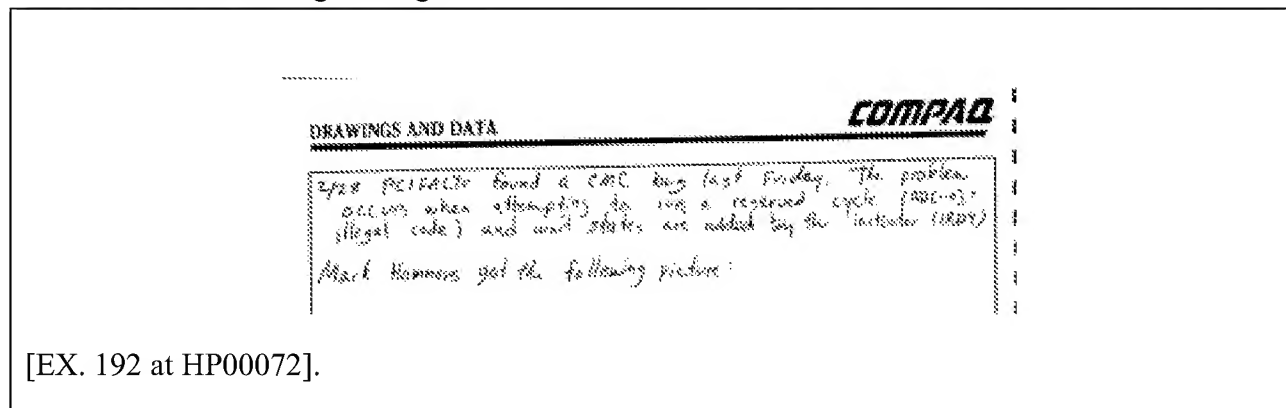 COMPAQ
DRAWINGS AND DATA
2/28 PCIFACTr found a CMC bug last Friday. The problem
occurs when attempting to run a reserved cycle
illegal code) and wait states are added by the initiator (IRDY)
Mark Hommers got the following picture:
[EX. 192 at HP00072].